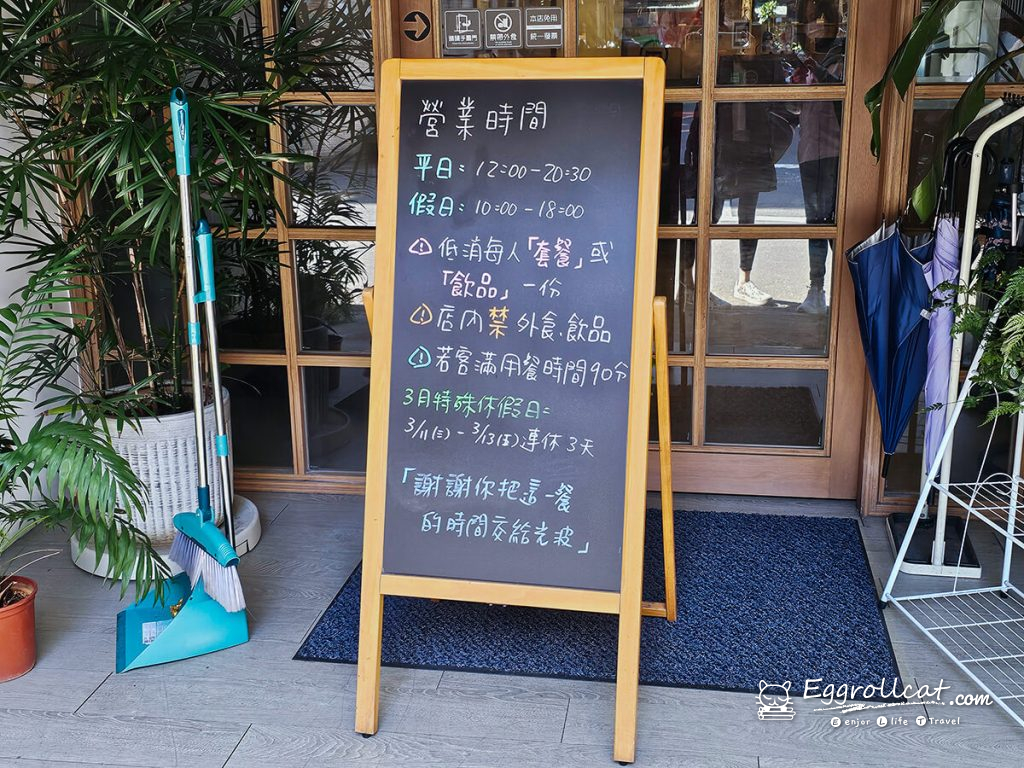 請隨手關門
禁帶外食
本店免用
統一發票
營業時間
平日: 12:00-20:30
假日: 10:00-18:00
低消每人「套餐」或
「飲品」一份
店內禁外食、飲品
若客滿用餐時間90分
3月特殊休假日:
3/11(三)-3/13(五)連休3天
「謝謝你把這一餐
的時間交給光波」
Eggrollcat.com
Enjoy Life Travel